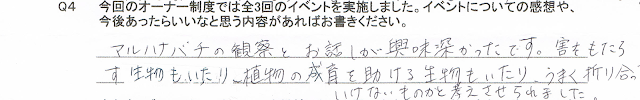 Q4 今回のオーナー制度では全3回のイベントを実施しました。イベントについての感想や、
今後あったらいいなと思う内容があればお書きください。
マルハナバチの観察と お話しが興味深かったです。害をもたら
す生物もいたり、植物の成育を助ける生物もいたり、うまく折り合っ
いけないものかと考えさせられました。